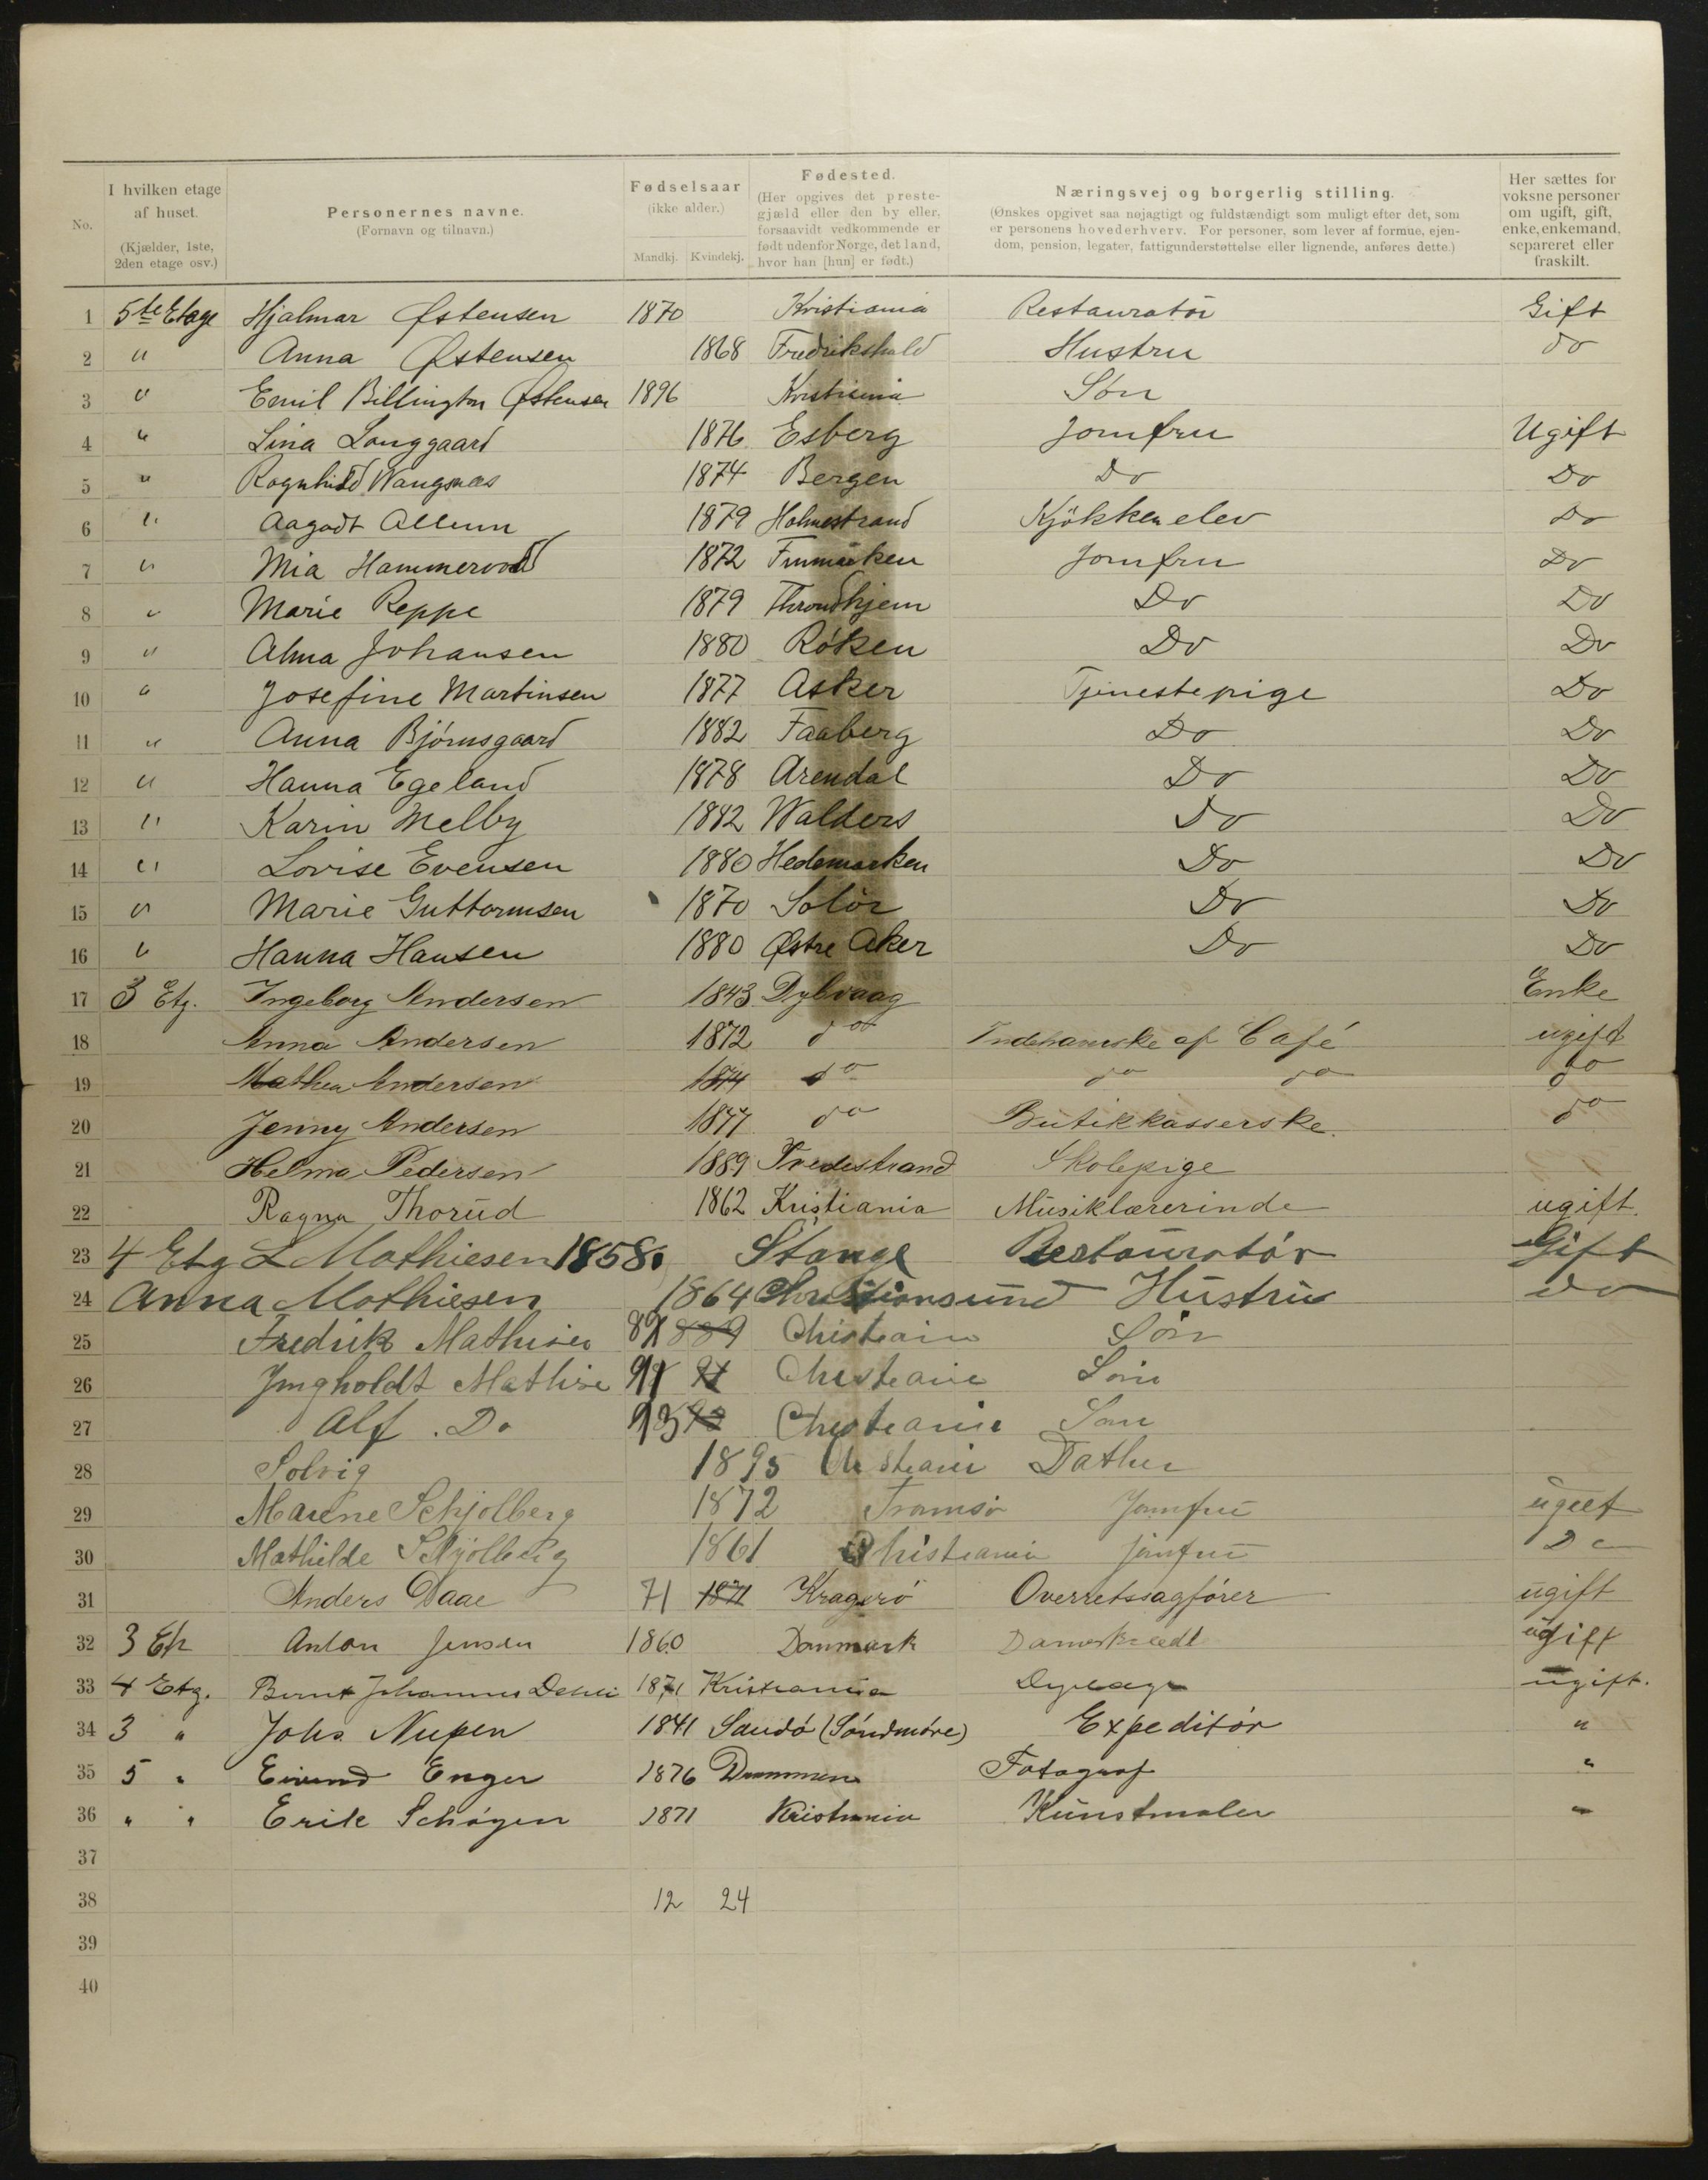 No.
I hvilken etage af huset.
(Kjælder, 1ste, 2den etage osv.)
Personernes navne.
(Fornavn og tilnavn.)
Fødselsaar
(ikke alder.)
Mandkj. Kvindekj.
Fødested.
(Her opgives det prestegjæld eller den by eller, forsaavidt vedkommende er født udenfor Norge, det land, hvor han [hun] er født.)
Næringsvej og borgerlig stilling.
(Ønskes opgivet saa nøjagtigt og fuldstændigt som muligt efter det, som er personens hovederhverv. For personer, som lever af formue, ejendom, pension, legater, fattigunderstøttelse eller lignende, anføres dette.)
Her sættes for voksne personer om ugift, gift, enke, enkemand, separeret eller fraskilt.
1 5te Etage Hjalmar Østensen 1870 Kristiania Restauratör Gift
2 " Anna Østensen 1868 Fredrikshald Hustru do
3 " Emil Billington Østensen 1896 Kristiania Søn
4 " Lina Langgaard 1876 Esberg Jomfru Ugift
5 " Ragnhild Wangsnes 1874 Bergen Do Do
6 " Aagodt Allum 1879 Holmestrand Kjökkenelev Do
7 " Mia Hammervold 1872 Finmarken Jomfru Do
8 " Marie Reppe 1879 Throndhjem Do Do
9 " Alma Johansen 1880 Røken Do Do
10 " Josefine Martinsen 1877 Asker Tjenestepige Do
11 " Anna Bjórnsgaard 1882 Faaberg Do Do
12 " Hanna Egeland 1878 Arendal Do Do
13 " Karin Melby 1882 Walders Do Do
14 " Lovise Evensen 1880 Hedemarken Do Do
15 " Marie Guttormsen 1870 Solör Do Do
16 " Hanna Hansen 1880 Østre Aker Do Do
17 3 Etg. Ingeborg Andersen 1843 Dybvaag Enke
18 Anna Andersen 1872 do Indehaverske af Café ugift
19 Mathea Andersen 1874 do do do do
20 Jenny Andersen 1877 do Butikkasserske. do
21 Helma Pedersen 1889 Tvedestrand Skolepige
22 Ragna Thorud 1862 Kristiania Musiklærerinde ugift.
23 4 Etg L Mathiesen 1858 Stange Restauratór Gift
24 Anna Mathiesen 1864 Christiansund Hustru do
25 Fredrik Mathisen 89 1889 Christiania Sön
26 Jngholdt Mathise 91 91 Christianie Sön
27 Alf. Do 93 Christianie Son
28 Solvig 1895 Christiani Dather
29 Marene Schjolberg 1872 Tromsö Jomfru ugift
30 Mathilde Schjolberg 1861 Christiania jomfru Do
31 Anders Daae 71 1871 Kragerö Overretssagfører ugift
32 3 Et Anton Jensen 1860 Danmark ugift
33 4 Etg. Bernt Johannes 1871 Kristiania ugift.
34 3 " Johs. Nupen 1841 Sandó (Sóndmóre) Expeditór "
35 5 " Eivind Enger 1876 Drammen Fotograf "
36 " " Erik Schøyen 1871 Kristiania Kunstmaler "
37
38 12 24
39
40